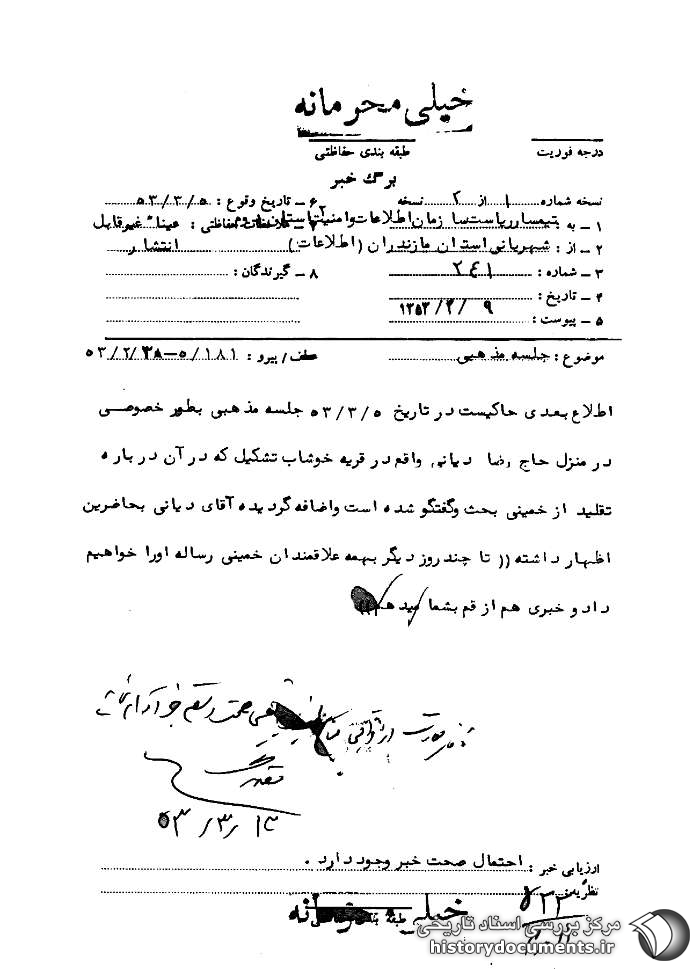 خیلی محرمانه
درجه فوریت
طبقه بندی حفاظتی
برگ خبر
نسخه شماره ۱ از ۲ نسخه
۶ ـ تاریخ وقوع : ۵۳/۳/۵
۱ ـ به : تیمسار ریاست سازمان اطلاعات و امنیت استان
حفاظتی : عیناً غیرقابل
انتشار
۲ ـ از : شهربانی استان مازندران (اطلاعات)
۳ ـ شماره : ۲۴۱
۸ ـ گیرندگان :
۴ ـ تاریخ : ۱۳۵۳/۳/۹
۵ ـ پیوست :
موضوع : جلسه مذهبی
عطف / پیرو : ۵/۱۸۱–۵۳/۲/۲۸
اطلاع بعدی حاکیست در تاریخ ۵۳/۳/۵ جلسه مذهبی بطور خصوصی
در منزل حاج رضا دیانی واقع در قریه خوشاب تشکیل که در آن درباره
تقلید از خمینی بحث وگفتگو شده است واضافه گردیده آقای دیانی بحاضرین
اظهار داشته (( تا چند روز دیگر بهمه علاقمندان خمینی رساله اورا خواهیم
داد و خبری هم از قم بشما میدهم ))
۵۳/۳/۱۳
ارزیابی خبر : احتمال صحت خبر وجود دارد .
نظریه :
خیلی محرمانه
طبقه بندی حفاظتی
مرکز بررسی اسناد تاریخی
historydocuments.ir